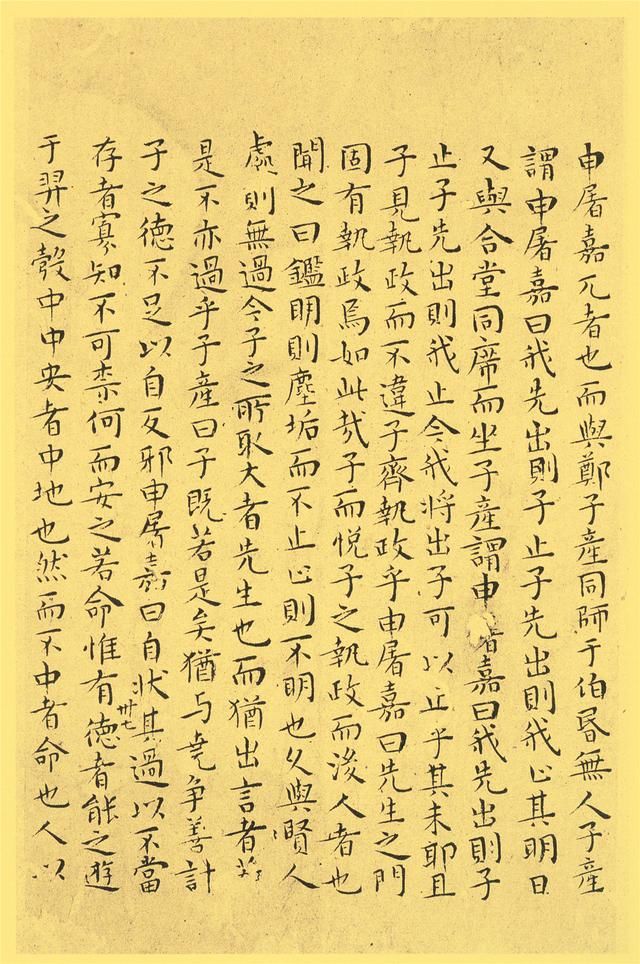 申屠嘉兀者也而與鄭子產同師于伯昏無人子產
謂申屠嘉曰我先出則子止子先出則我止其明日
又與合堂同席而坐子產謂申屠嘉曰我先出則子
止子先出則我止今我將出子可以止乎其未耶且
子見執政而不違子齊執政乎申屠嘉曰先生之門
固有執政焉如此哉子而悅子之執政而後人者也
聞之曰鑑明則塵垢而不止止則不明也久與賢人
處則無過今子之所取大者先生也而猶出言者若
是不亦過乎子產曰子既若是矣猶与堯爭善計
子之德不足以自反邪申屠嘉曰自狀其過以不當
存者寡知不可柰何而安之若命惟有德者能之遊
于羿之彀中中央者中地也然而不中者命也人以
卅七